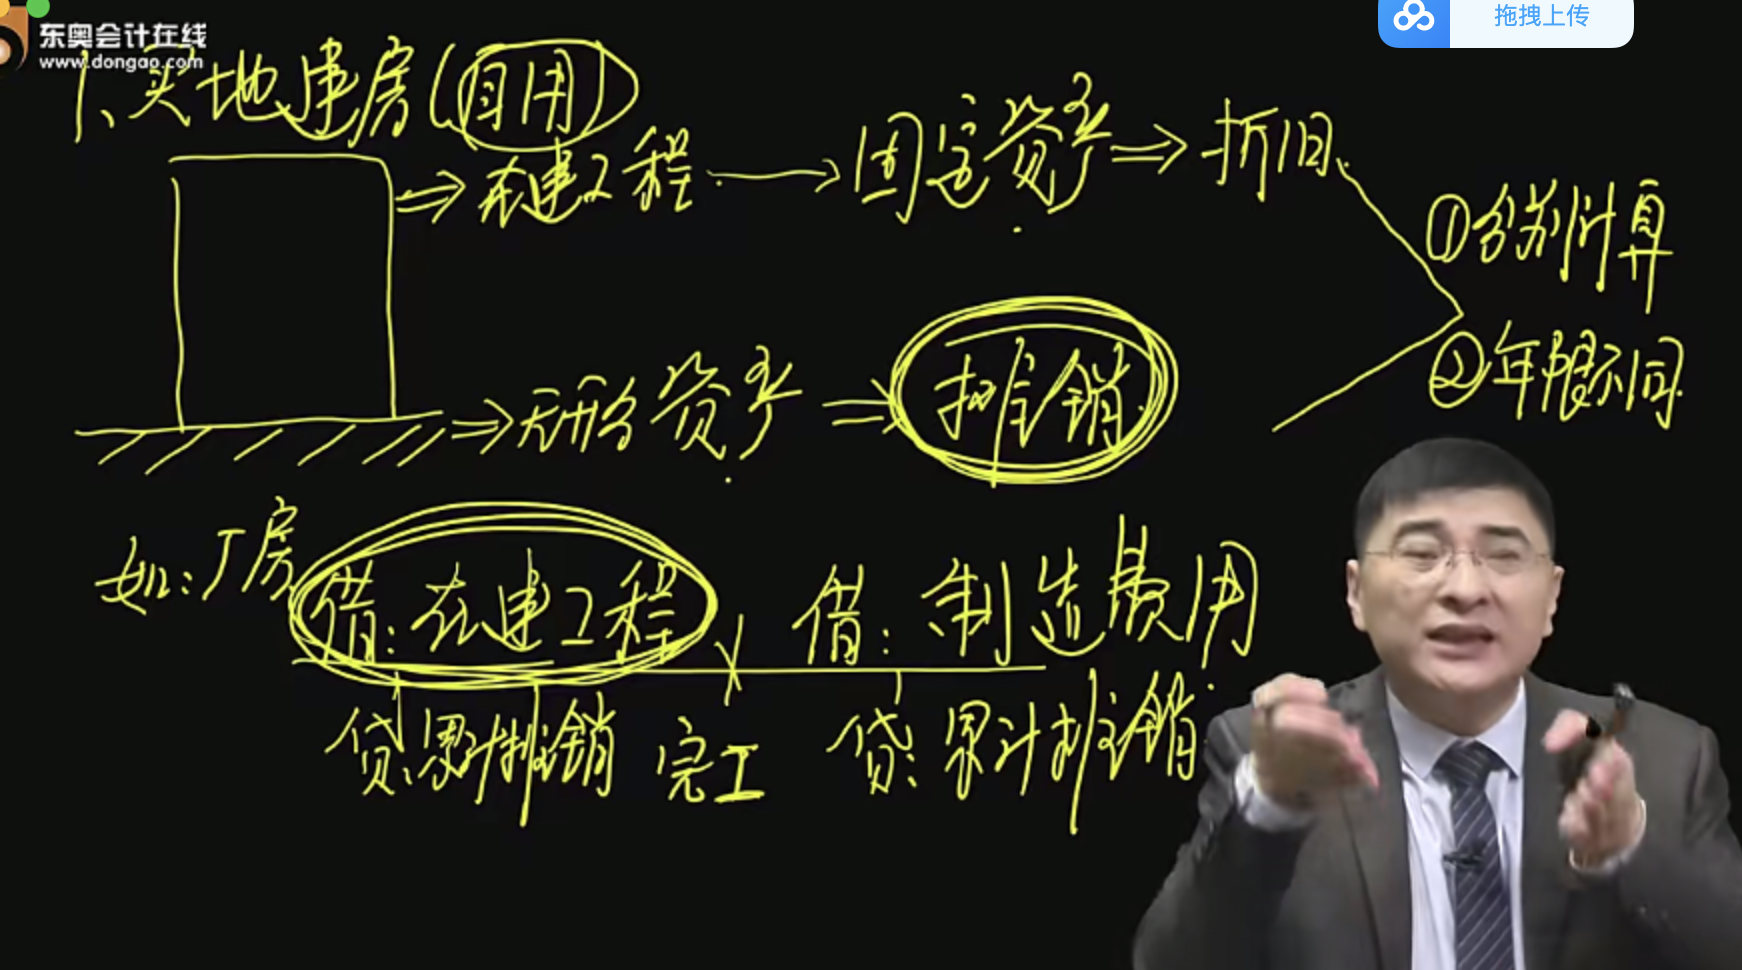 东奥会计在线
www.dongao.com
拖拽上传
1、买地建房(自用)
⇒在建工程→固定资产⇒折旧
①分别计算
②年限不同
⇒无形资产⇒摊销
如:厂房
借:在建工程
借:制造费用
贷:累计摊销
完工
贷:累计摊销